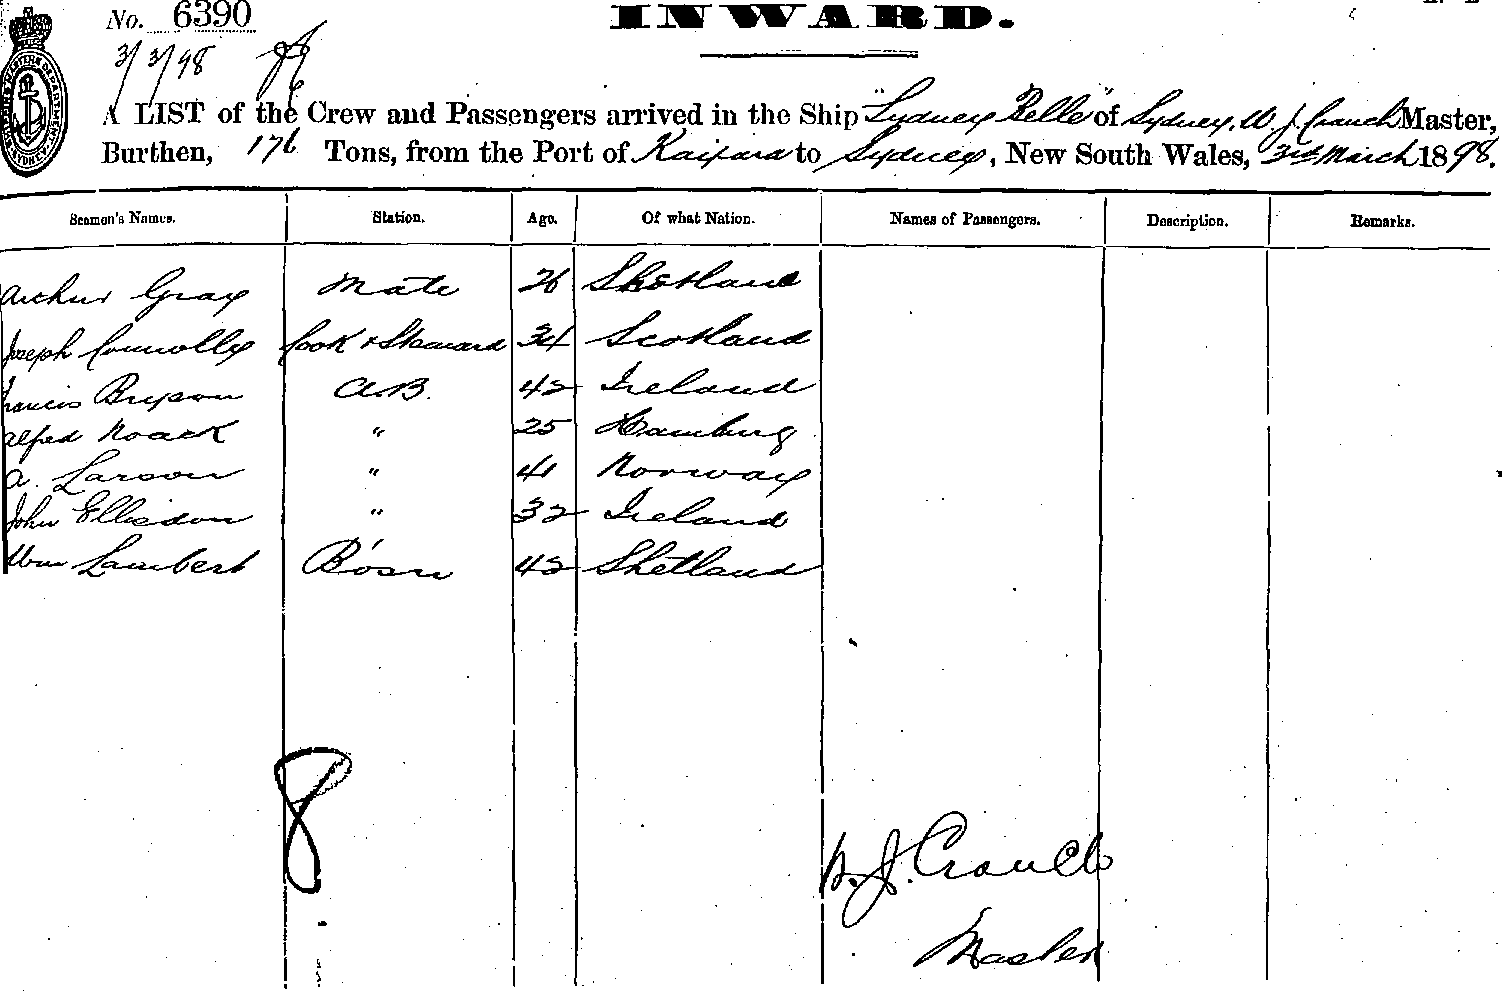 No. 6390
INWARD.
3/3/98
A LIST of the Crew and Passengers arrived in the Ship "Sydney Belle" of Sydney, W. J. Crouch Master,
Burthen, 176 Tons, from the Port of Kaipara to Sydney, New South Wales, 3rd March 1898.
Seamen's Names. Station. Age. Of what Nation. Names of Passengers. Description. Remarks.
Arthur Gray Mate 26 Shetland
Joseph Connolly Cook & Steward 34 Scotland
Francis Bryson A.B. 42 Ireland
Alfred Noack " 25 Hamburg
A. Larson " 41 Norway
John Ellisdon " 32 Ireland
Wm Lambert B'osn 42 Shetland
8
W. J. Crouch
Master